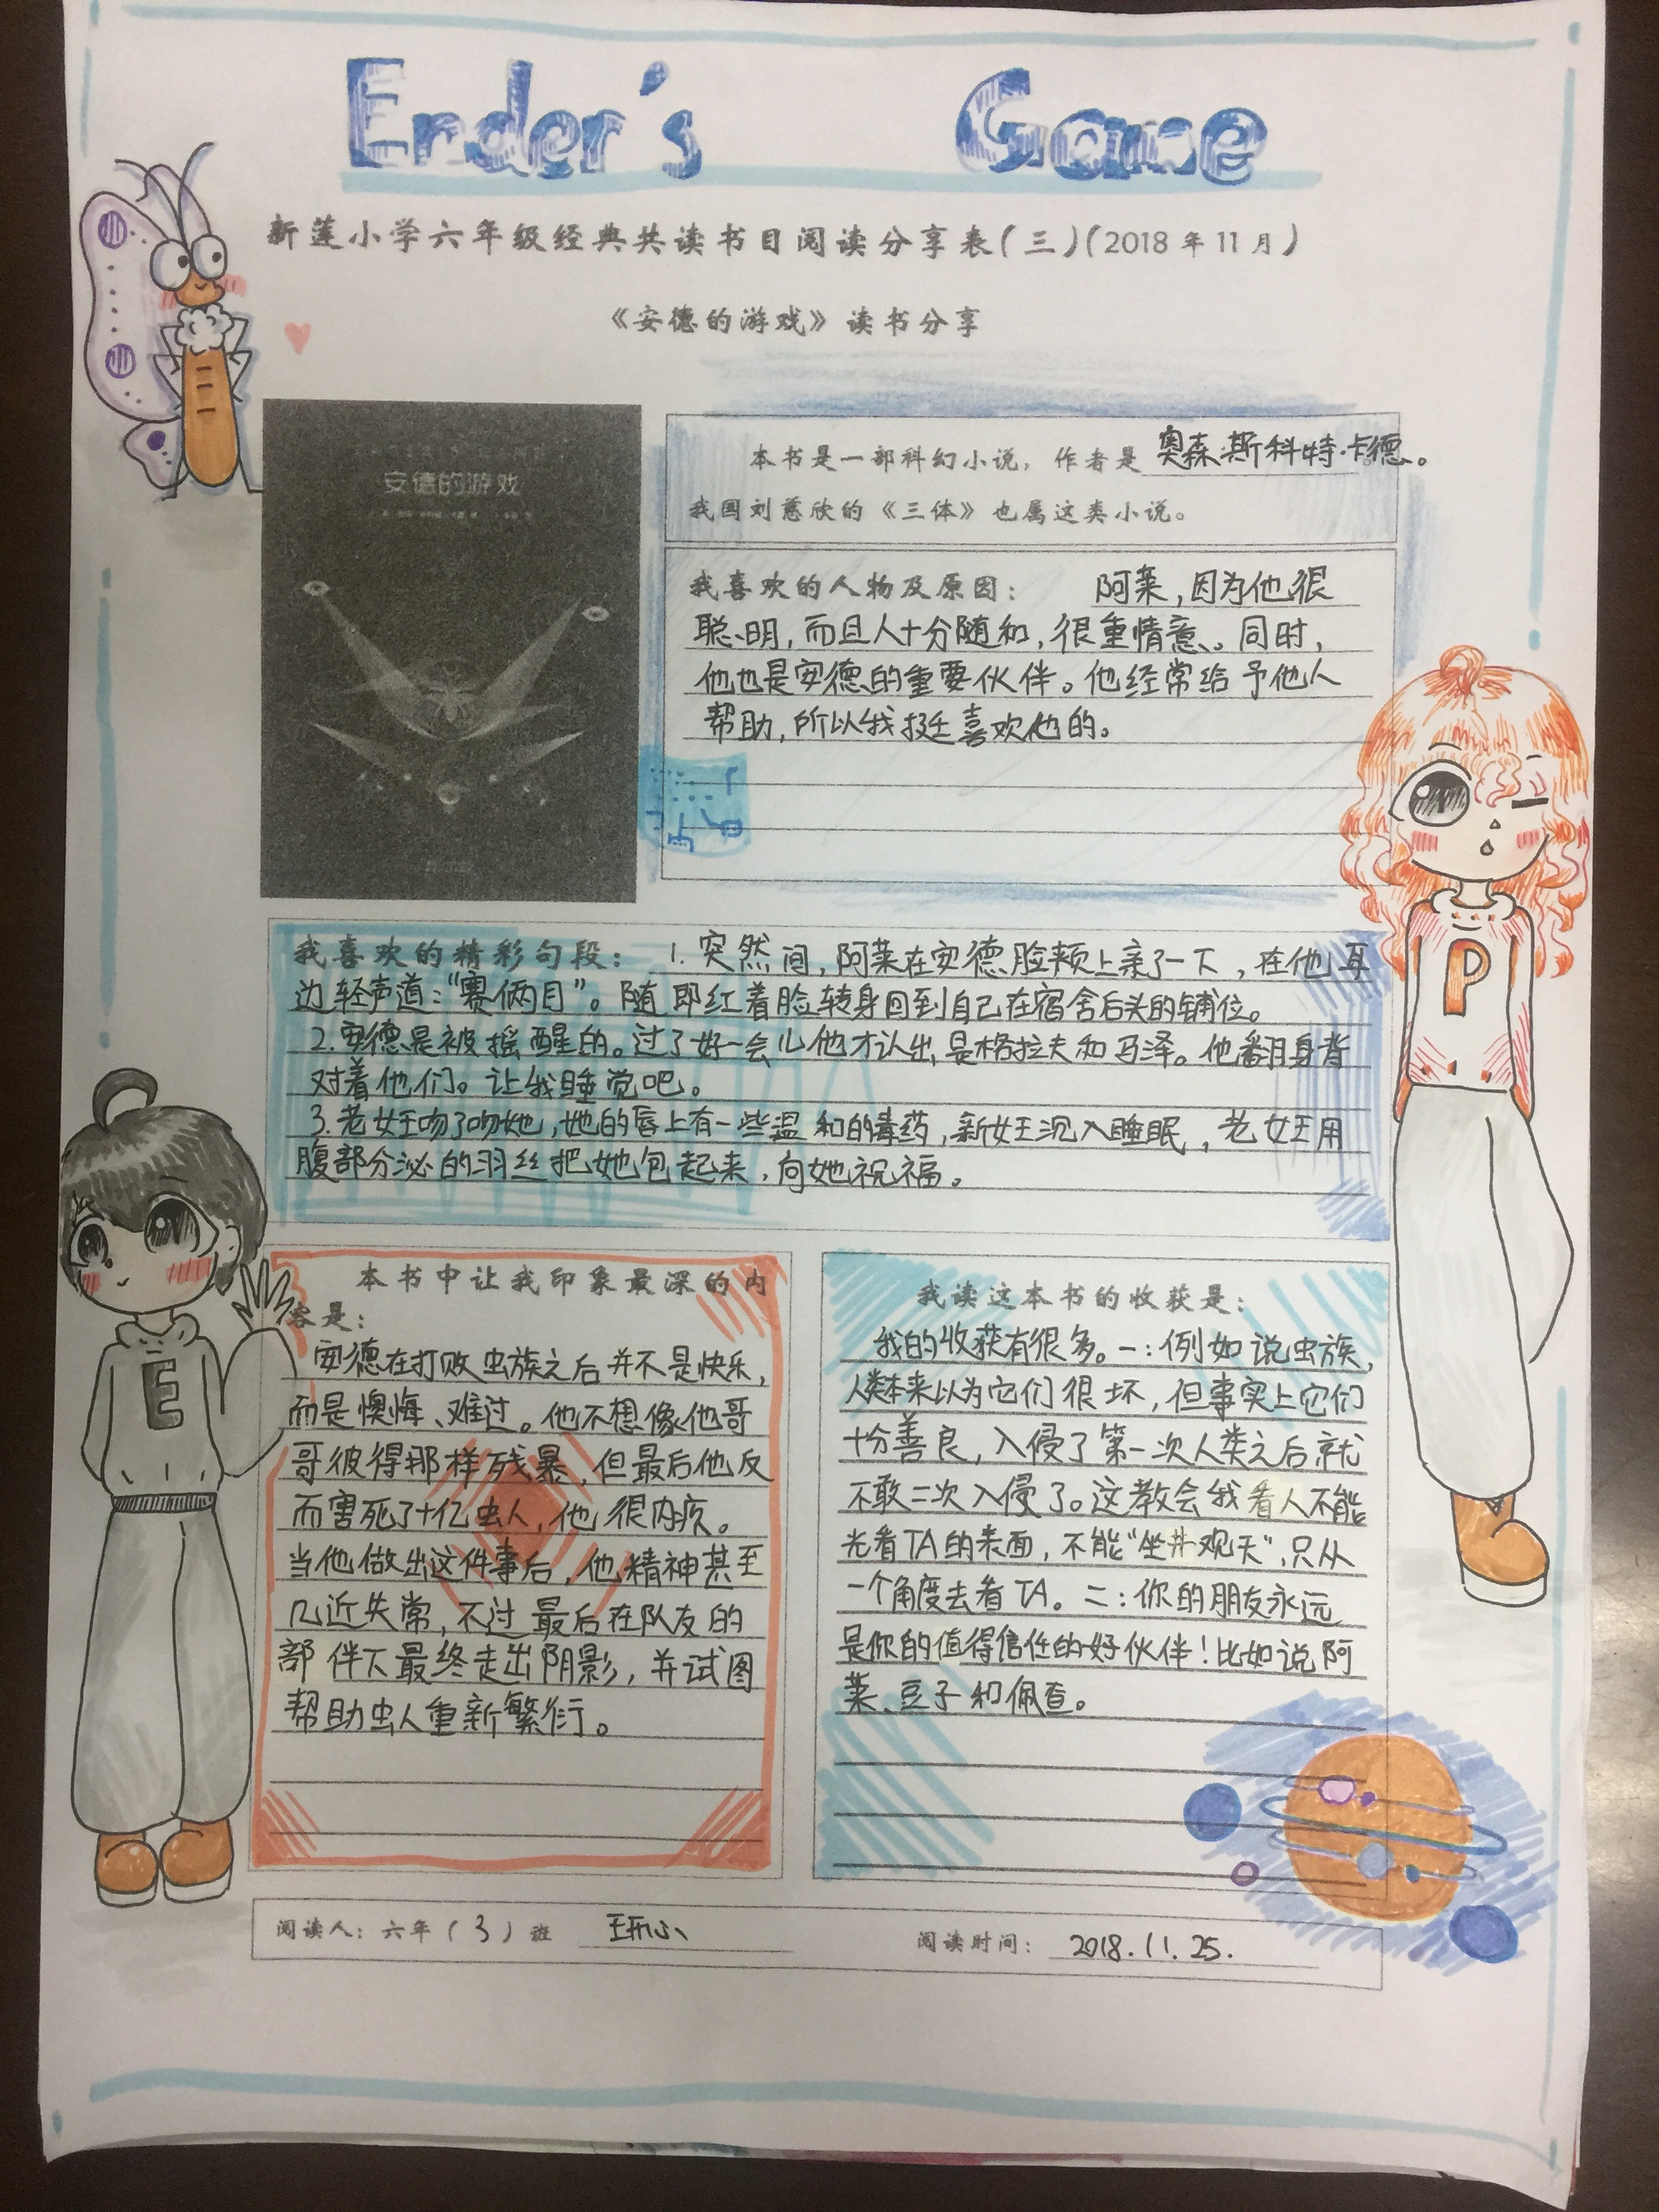 Ender's Game
新莲小学六年级经典共读书目阅读分享表(三)(2018年11月)
《安德的游戏》读书分享
安德的游戏
本书是一部科幻小说，作者是 奥森·斯科特·卡德。
我国刘慈欣的《三体》也属这类小说。
我喜欢的人物及原因： 阿莱，因为他很
聪明，而且人十分随和，很重情意。同时，
他也是安德的重要伙伴。他经常给予他人
帮助，所以我挺喜欢他的。
我喜欢的精彩句段： 1.突然间，阿莱在安德脸颊上亲了一下，在他耳
边轻声道：“赛俩目”。随即红着脸转身回到自己在宿舍后头的铺位。
2.安德是被摇醒的。过了好一会儿他才认出是格拉夫和马泽。他翻身背
对着他们。让我睡觉吧。
3.老女王吻了吻她，她的唇上有一些温和的毒药，新女王沉入睡眠，老女王用
腹部分泌的羽丝把她包起来，向她祝福。
本书中让我印象最深的内
容是：
安德在打败虫族之后并不是快乐，
而是懊悔、难过。他不想像他哥
哥彼得那样残暴，但最后他反
而害死了十亿虫人，他很内疚。
当他做出这件事后，他精神甚至
几近失常，不过最后在队友的
部伴下最终走出阴影，并试图
帮助虫人重新繁衍。
我读这本书的收获是：
我的收获有很多。一：例如说虫族，
人类本来以为它们很坏，但事实上它们
十分善良，入侵了第一次人类之后就
不敢二次入侵了。这教会我看人不能
光看TA的表面，不能“坐井观天”，只从
一个角度去看TA。二：你的朋友永远
是你的值得信任的好伙伴！比如说阿
莱、豆子和佩查。
E
P
阅读人：六年(3)班 王开心
阅读时间： 2018.11.25.